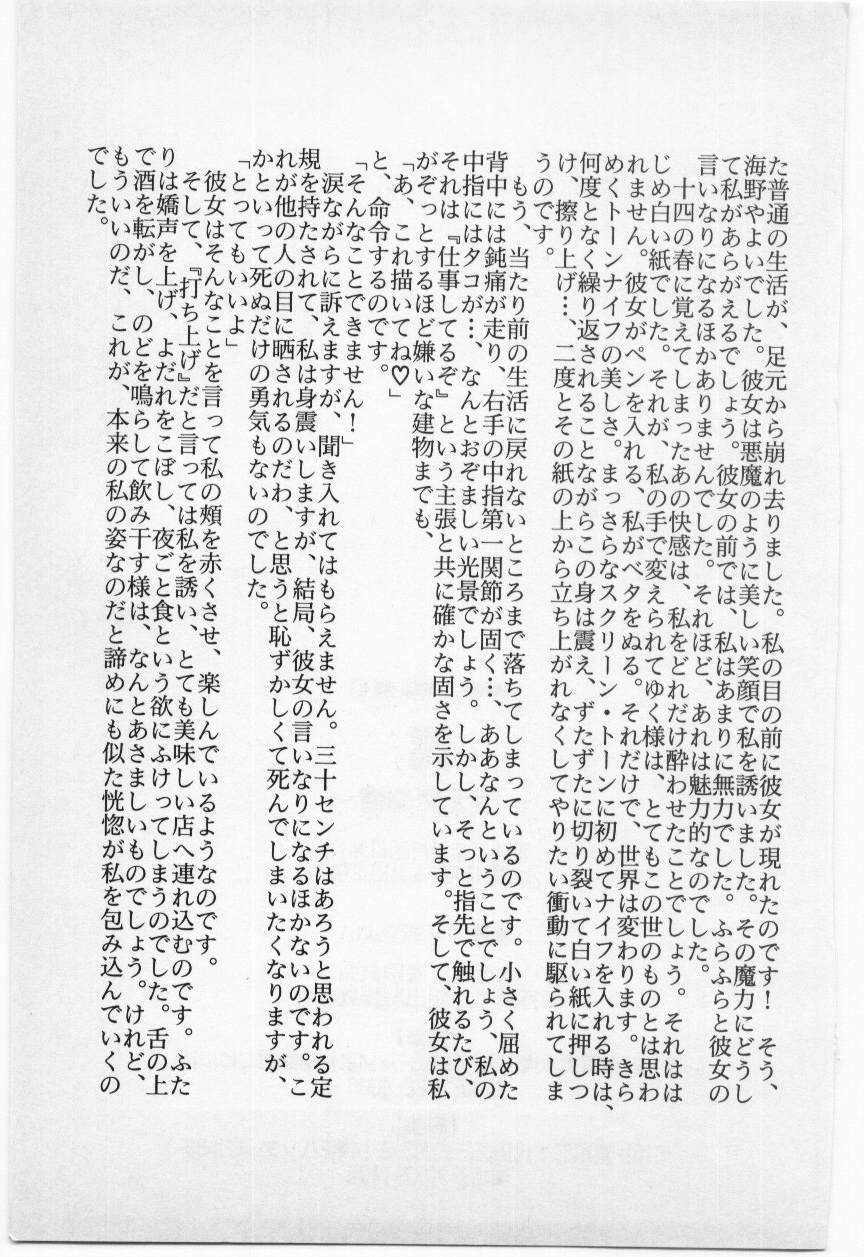 た普通の生活が、足元から崩れ去りました。私の目の前に彼女が現れたのです!　そう、
海野やよいでした。彼女は悪魔のように美しい笑顔で私を誘いました。その魔力にどうし
て私があらがえるでしょう。彼女の前では、私はあまりに無力でした。ふらふらと彼女の
言いなりになるほかありませんでした。それほど、あれは魅力的なのでした。
　十四の春に覚えてしまったあの快感は、私をどれだけ酔わせたことでしょう。それはは
じめ白い紙でした。それが、私の手で変えられてゆく様は、とてもこの世のものとは思わ
れません。彼女がペンを入れる、私がベタをぬる。それだけで、世界は変わります。きら
めくトーンナイフの美しさ。まっさらなスクリーン・トーンに初めてナイフを入れる時は、
何度となく繰り返されることながらこの身は震え、ずたずたに切り裂いて白い紙に押しつ
け、擦り上げ…、二度とその紙の上から立ち上がれなくしてやりたい衝動に駆られてしま
うのです。
　もう、当たり前の生活に戻れないところまで落ちてしまっているのです。小さく屈めた
背中には鈍痛が走り、右手の中指第一関節が固く…、ああなんということでしょう、私の
中指にはタコが…、なんとおぞましい光景でしょう。しかし、そっと指先で触れるたび、
それは『仕事してるぞ』という主張と共に確かな固さを示しています。そして、彼女は私
がぞっとするほど嫌いな建物までも、
「あ、これ描いてね♡」
と、命令するのです。
「そんなことできません!」
　涙ながらに訴えますが、聞き入れてはもらえません。三十センチはあろうと思われる定
規を持たされて、私は身震いしますが、結局、彼女の言いなりになるほかないのです。こ
れが他の人の目に晒されるのだわ、と思うと恥ずかしくて死んでしまいたくなりますが、
かといって死ぬだけの勇気もないのでした。
「とってもいいよ」
　彼女はそんなことを言って私の頬を赤くさせ、楽しんでいるようなのです。
　そして、『打ち上げ』だと言っては私を誘い、とても美味しい店へ連れ込むのです。ふた
りは嬌声を上げ、よだれをこぼし、夜ごと食という欲にふけってしまうのでした。舌の上
で酒を転がし、のどを鳴らして飲み干す様は、なんとあさましいものでしょう。けれど、
もういいのだ、これが、本来の私の姿なのだと諦めにも似た恍惚が私を包み込んでいくの
でした。